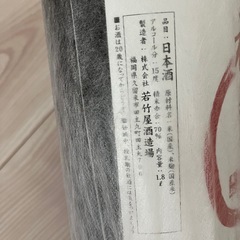 品目：日本酒
原材料名：米(国産)、米麹(国産米)
アルコール分 15度 精米歩合：70% 内容量：1.8ℓ
製造者：株式会社 若竹屋酒造場
福岡県久留米市田主丸町田主丸
■お酒は20歳になってから